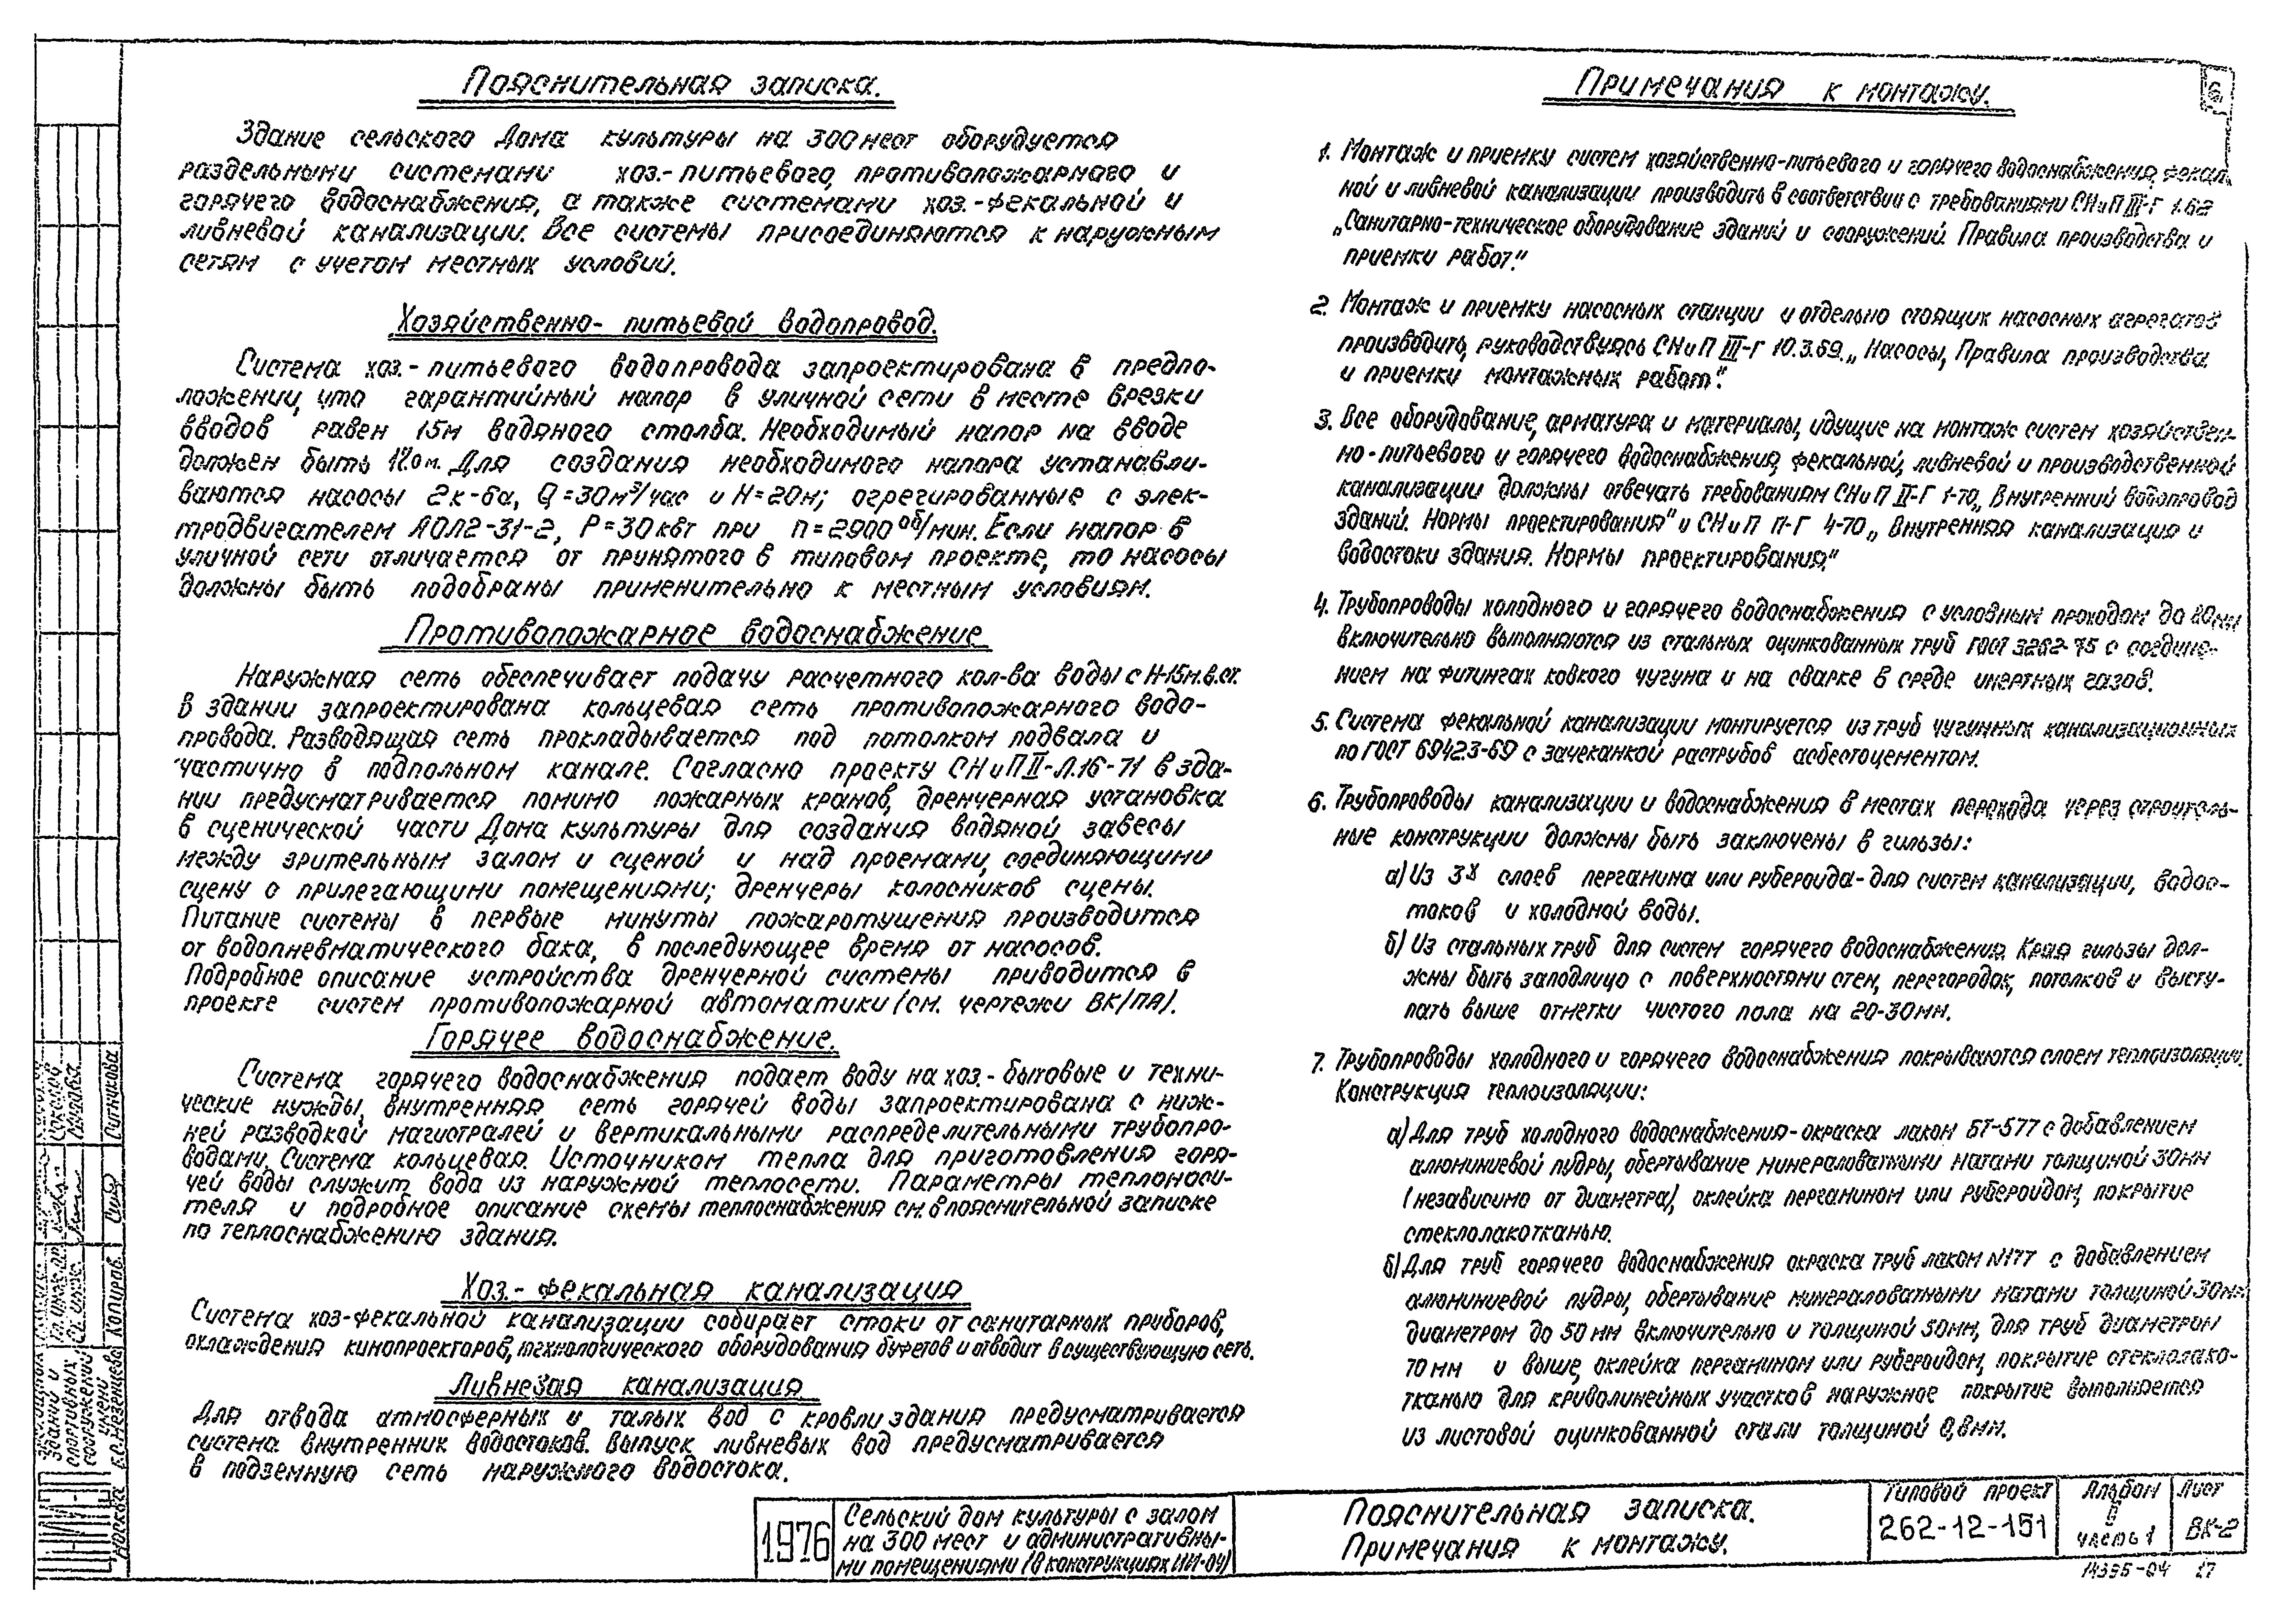 Пояснительная записка.
Здание сельского Дома культуры на 300 мест оборудуется
раздельными системами хоз.-питьевого, противопожарного и
горячего водоснабжения, а также системами хоз.-фекальной и
ливневой канализации. Все системы присоединяются к наружным
сетям с учетом местных условий.
Хозяйственно-питьевой водопровод.
Система хоз.-питьевого водопровода запроектирована в предпо-
ложении, что гарантийный напор в уличной сети в месте врезки
вводов равен 15м водяного столба. Необходимый напор на вводе
должен быть 17,0 м. Для создания необходимого напора устанавли-
ваются насосы 2к-6а, Q=30м³/час и H=20м; агрегированные с элек-
тродвигателем АОЛ2-31-2, P=30 квт при n=2900 об/мин. Если напор в
уличной сети отличается от принятого в типовом проекте, то насосы
должны быть подобраны применительно к местным условиям.
Противопожарное водоснабжение
Наружная сеть обеспечивает подачу расчетного кол-ва воды с Н-15м.в.ст.
В здании запроектирована кольцевая сеть противопожарного водо-
провода. Разводящая сеть прокладывается под потолком подвала и
частично в подпольном канале. Согласно проекту СНиП II-Л.16-71 в зда-
нии предусматривается помимо пожарных кранов, дренчерная установка
в сценической части Дома культуры для создания водяной завесы
между зрительным залом и сценой и над проемами, соединяющими
сцену с прилегающими помещениями; дренчеры колосников сцены.
Питание системы в первые минуты пожаротушения производится
от водопневматического бака, в последующее время от насосов.
Подробное описание устройства дренчерной системы приводится в
проекте систем противопожарной автоматики (см. чертежи ВК/ПА).
Горячее водоснабжение.
Система горячего водоснабжения подает воду на хоз.-бытовые и техни-
ческие нужды, внутренняя сеть горячей воды запроектирована с ниж-
ней разводкой магистралей и вертикальными распределительными трубопро-
водами. Система кольцевая. Источником тепла для приготовления горя-
чей воды служит вода из наружной теплосети. Параметры теплоноси-
теля и подробное описание схемы теплоснабжения см. в пояснительной записке
по теплоснабжению здания.
Хоз.-фекальная канализация
Система хоз-фекальной канализации собирает стоки от санитарных приборов,
охлаждения кинопроекторов, технологического оборудования буфетов и отводит в существующую сеть.
Ливневая канализация
Для отвода атмосферных и талых вод с кровли здания предусматривается
система внутренних водостоков. Выпуск ливневых вод предусматривается
в подземную сеть наружного водостока.
Примечания к монтажу.
6
1. Монтаж и приемку систем хозяйственно-питьевого и горячего водоснабжения, фекаль-
ной и ливневой канализации производить в соответствии с требованиями СНиП III-Г 1.62
„Санитарно-техническое оборудование зданий и сооружений. Правила производства и
приемки работ."
2. Монтаж и приемку насосных станции и отдельно стоящих насосных агрегатов
производить, руководствуясь СНиП III-Г 10.3.69. „Насосы, Правила производства
и приемки монтажных работ".
3. Все оборудование, арматура и материалы, идущие на монтаж систем хозяйствен-
но-питьевого и горячего водоснабжения, фекальной, ливневой и производственной
канализации должны отвечать требованиям СНиП II-Г 1-70 „Внутренний водопровод
зданий. Нормы проектирования" и СНиП П-Г 4-70 „Внутренняя канализация и
водостоки здания. Нормы проектирования."
4. Трубопроводы холодного и горячего водоснабжения с условным проходом до 80мм
включительно выполняются из стальных оцинкованных труб ГОСТ 3262-75 с соедине-
нием на фитингах ковкого чугуна и на сварке в среде инертных газов.
5. Система фекальной канализации монтируется из труб чугунных канализационных
по ГОСТ 6942.3-69 с зачеканкой раструбов асбестоцементом.
6. Трубопроводы канализации и водоснабжения в местах перехода через строитель-
ные конструкции должны быть заключены в гильзы:
а) Из 3х слоев пергамина или рубероида-для систем канализации, водос-
токов и холодной воды.
б) Из стальных труб для систем горячего водоснабжения. Края гильзы дол-
жны быть заподлицо с поверхностями стен, перегородок, потолков и высту-
пать выше отметки чистого пола на 20-30мм.
7. Трубопроводы холодного и горячего водоснабжения покрываются слоем теплоизоляции.
Конструкция теплоизоляции:
а) Для труб холодного водоснабжения-окраска лаком БТ-577 с добавлением
алюминиевой пудры, обертывание минераловатными матами толщиной 30мм
(независимо от диаметра), оклейка пергамином или рубероидом, покрытие
стеклолакотканью.
б) Для труб горячего водоснабжения окраска труб лаком N177 с добавлением
алюминиевой пудры, обертывание минераловатными матами толщиной 30мм
диаметром до 50 мм включительно и толщиной 50мм, для труб диаметром
70 мм и выше, оклейка пергамином или рубероидом, покрытие стеклолако-
тканью для криволинейных участков наружное покрытие выполняется
из листовой оцинкованной стали толщиной 0,8мм.
1976
Сельский дом культуры с залом
на 300 мест и административны-
ми помещениями (в конструкциях ИИ-04)
Пояснительная записка.
Примечания к монтажу.
Типовой проект
262-12-151
Альбом
часть 1
Лист
ВК-2
14395-04 27
зданий и
спортивных
сооружений
имени
Б.С.Мезенцева
Москва
Копиров.